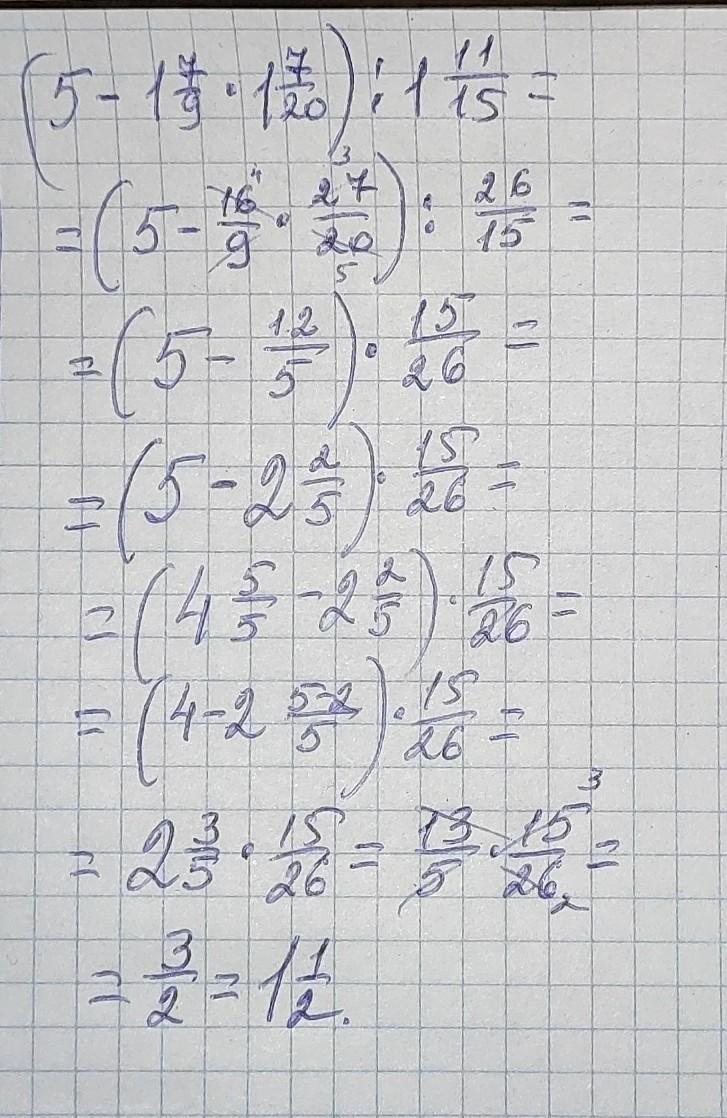 (5 - 1 7/9 · 1 7/20) : 1 11/15 =
= (5 - 16/9 4 · 27/20 3 5) : 26/15 =
= (5 - 12/5) · 15/26 =
= (5 - 2 2/5) · 15/26 =
= (4 5/5 - 2 2/5) · 15/26 =
= (4-2 5-2/5) · 15/26 =
= 2 3/5 · 15/26 = 13/5 · 15/26 3 2 =
= 3/2 = 1 1/2.